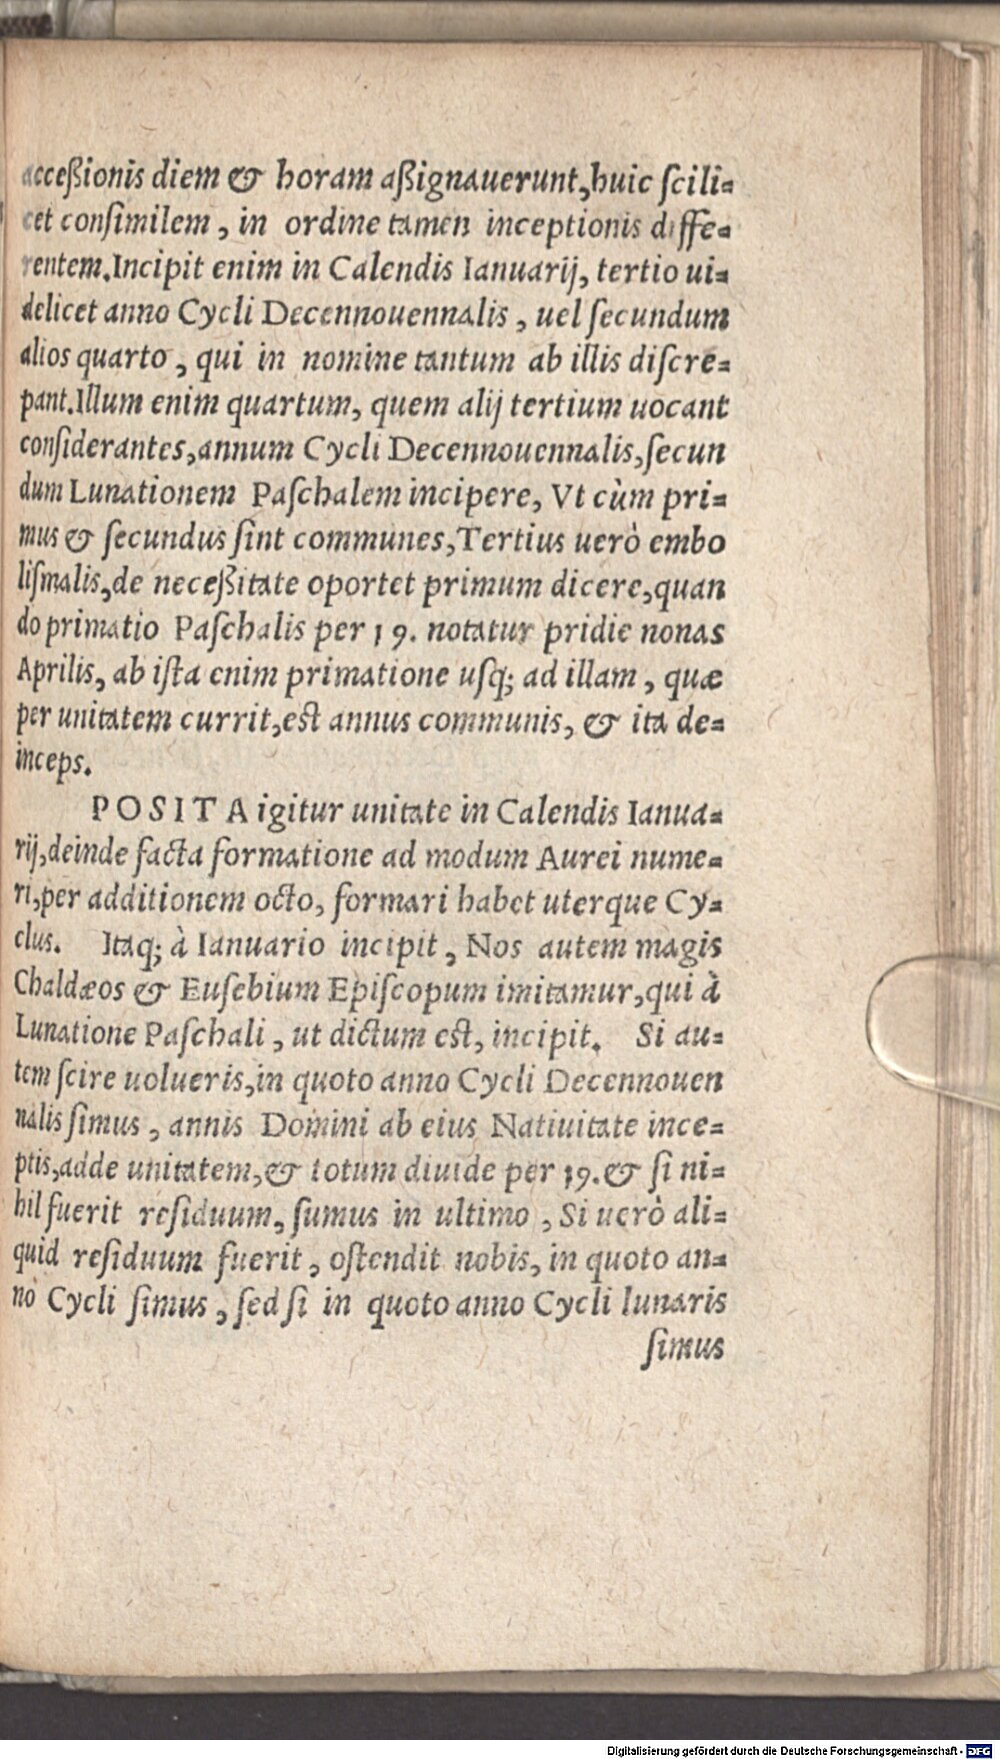 acceßionis diem & horam aßignauerunt,huic ſcili=
cet conſimilem , in ordine tamen inceptionis diffe=
rentem.Incipit enim in Calendis Ianuarij, tertio ui=
delicet anno Cycli Decennouennalis , uel ſecundum
alios quarto , qui in nomine tantum ab illis diſcre=
pant.Illum enim quartum, quem alij tertium uocant
conſiderantes,annum Cycli Decennouennalis,ſecun
dum Lunationem Paſchalem incipere, Vt cùm pri=
mus & ſecundus ſint communes,Tertius uerò embo
liſmalis,de neceßitate oportet primum dicere,quan
do primatio Paſchalis per 19. notatur pridie nonas
Aprilis, ab iſta enim primatione uſq; ad illam , quæ
per unitatem currit,eſt annus communis, & ita de=
inceps.
POSITA igitur unitate in Calendis Ianua=
rij,deinde facta formatione ad modum Aurei nume=
ri,per additionem octo, formari habet uterque Cy=
clus. Itaq; à Ianuario incipit , Nos autem magis
Chaldæos & Euſebium Epiſcopum imitamur,qui à
Lunatione Paſchali , ut dictum eſt, incipit. Si au=
tem ſcire uolueris,in quoto anno Cycli Decennouen
nalis ſimus , annis Domini ab eius Natiuitate ince=
ptis,adde unitatem,& totum diuide per 19.& ſi ni=
hil fuerit reſiduum, ſumus in ultimo , Si uerò ali=
quid reſiduum fuerit , oſtendit nobis, in quoto an=
no Cycli ſimus , ſed ſi in quoto anno Cycli lunaris
ſimus
Digitalisierung gefördert durch die Deutsche Forschungsgemeinschaft - DFG